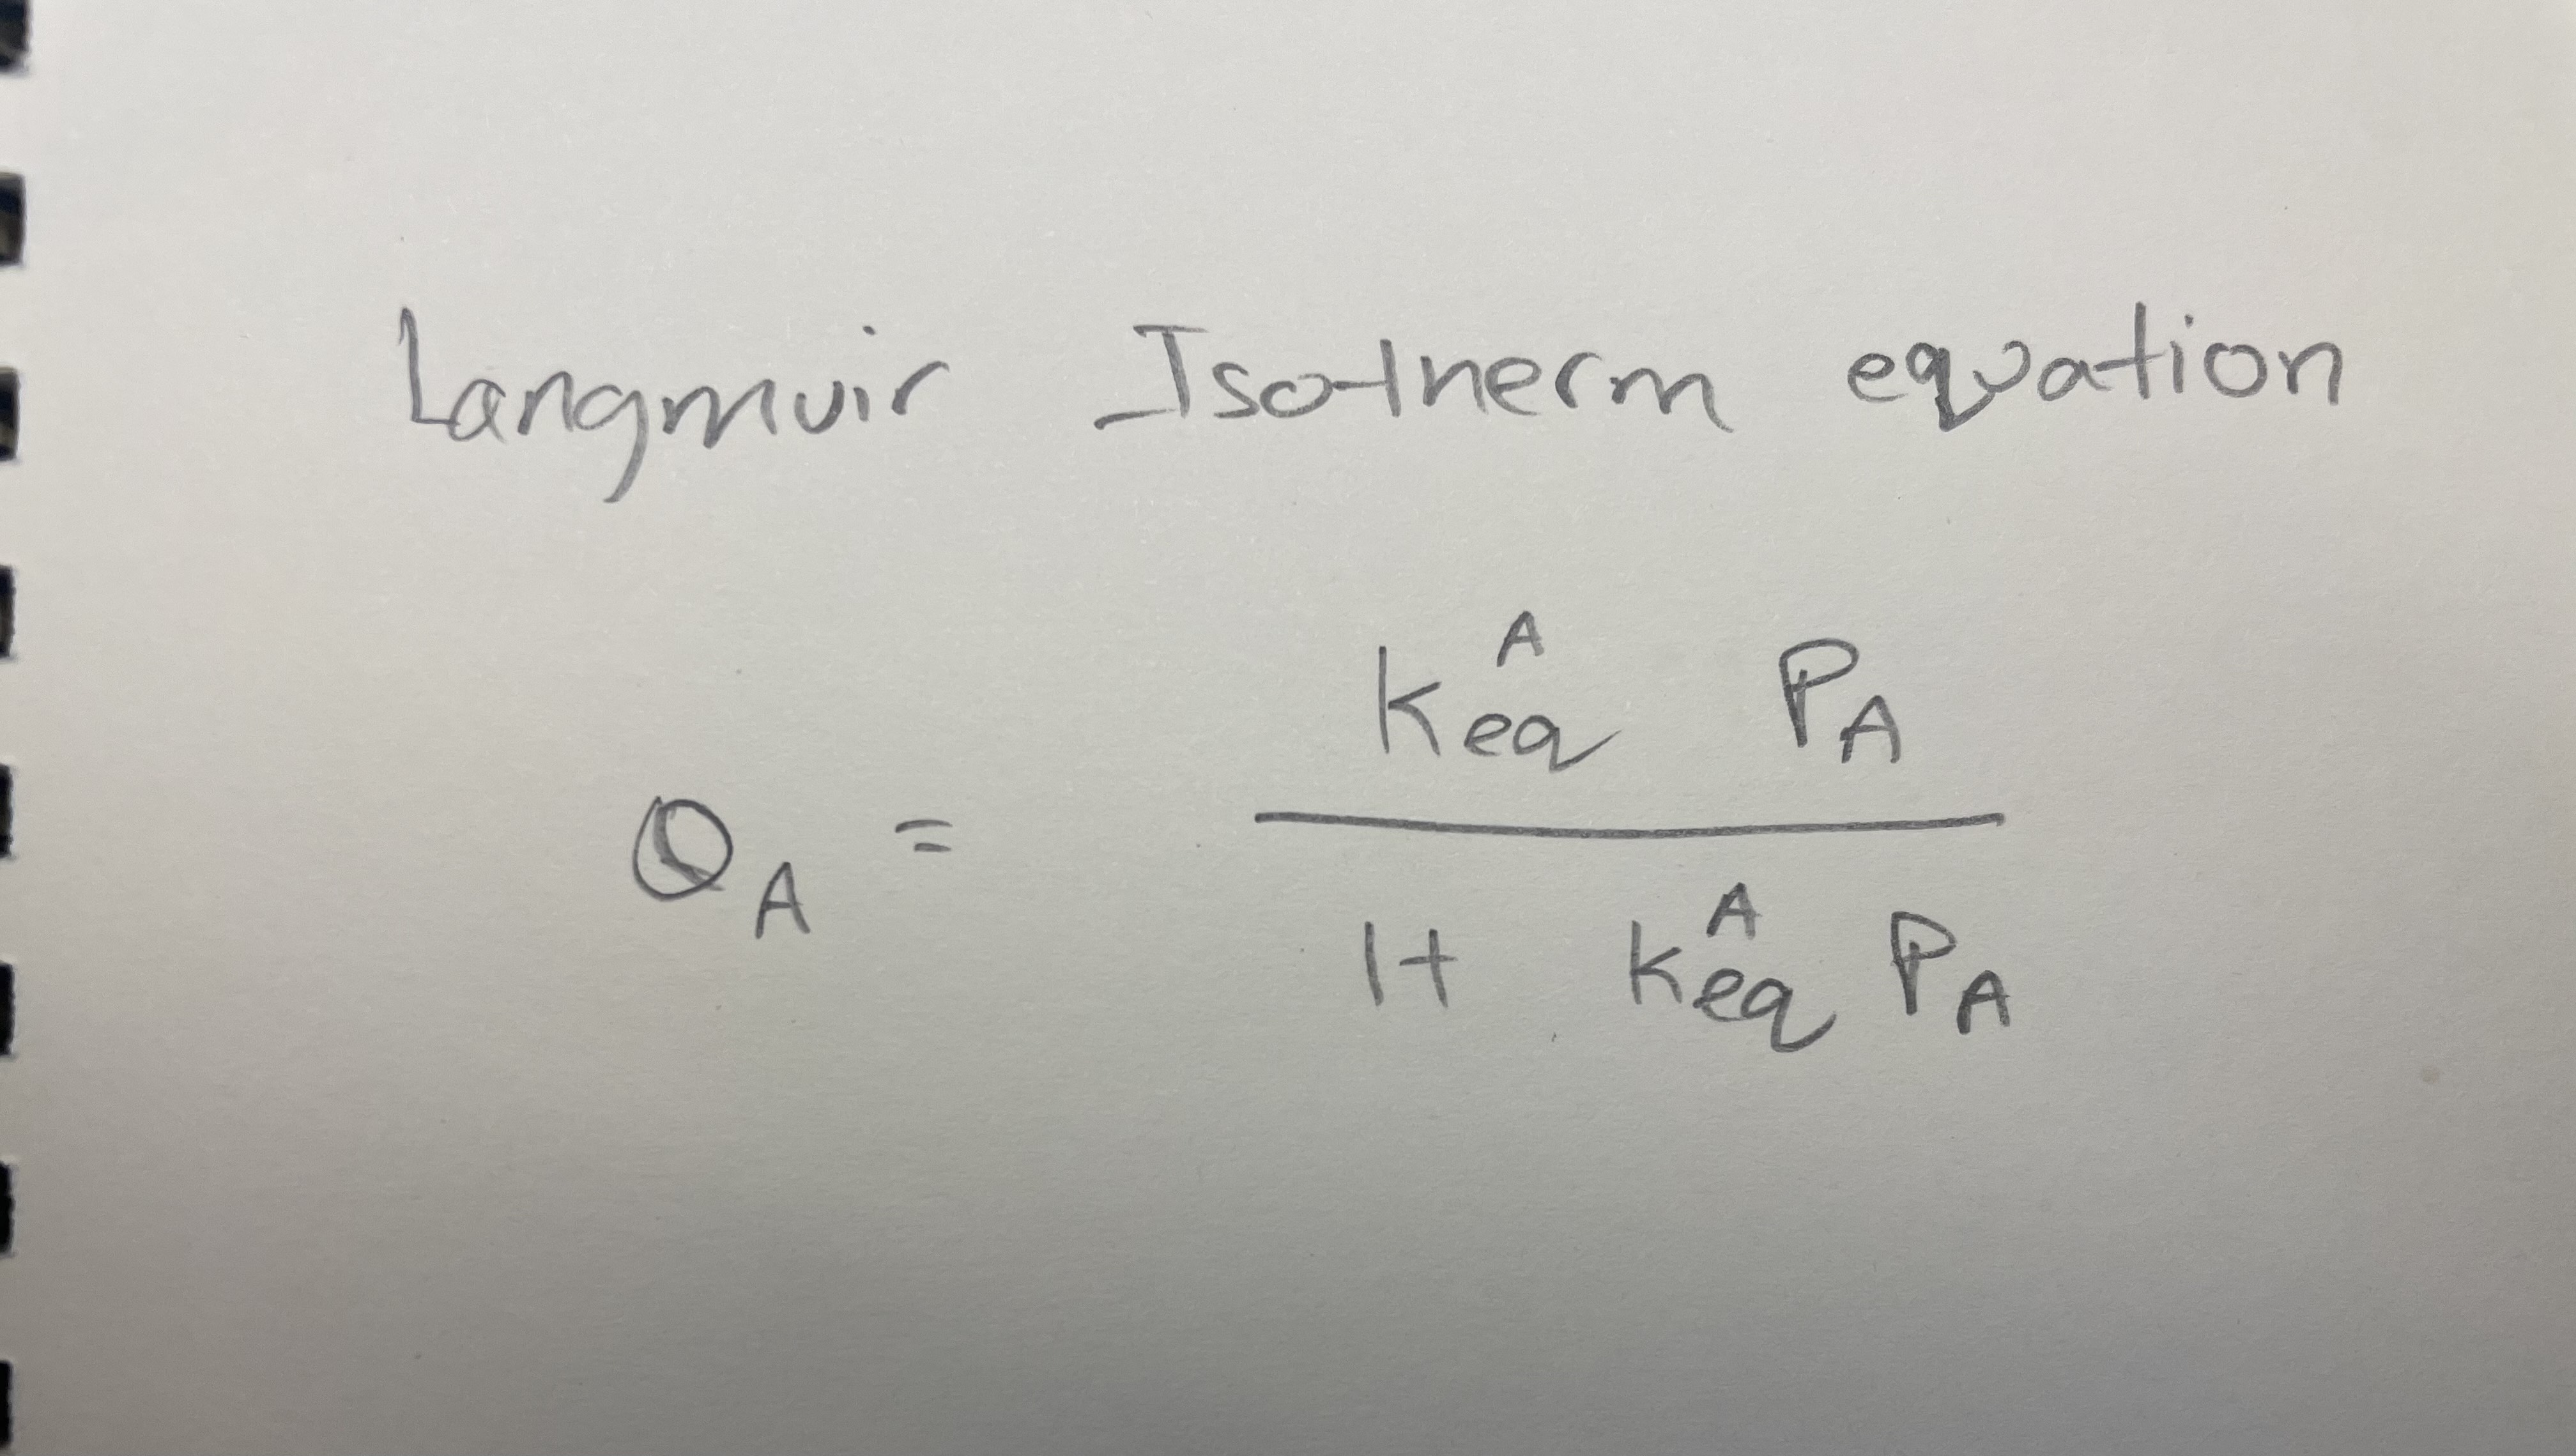 Langmuir Isotherm equation
θ_A = (K_eq^A P_A) / (1 + K_eq^A P_A)